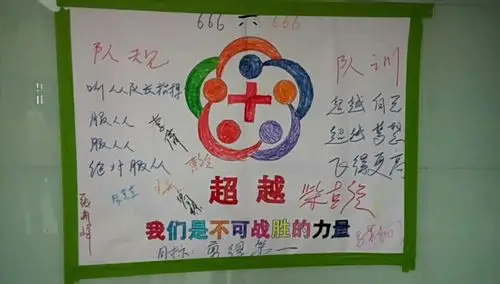 666 六 666
队规
队训
听从队长指挥
服从
服从
绝对服从
超越自己
超越梦想
飞得更高
超越
我们是不可战胜的力量
目标：勇猛第一